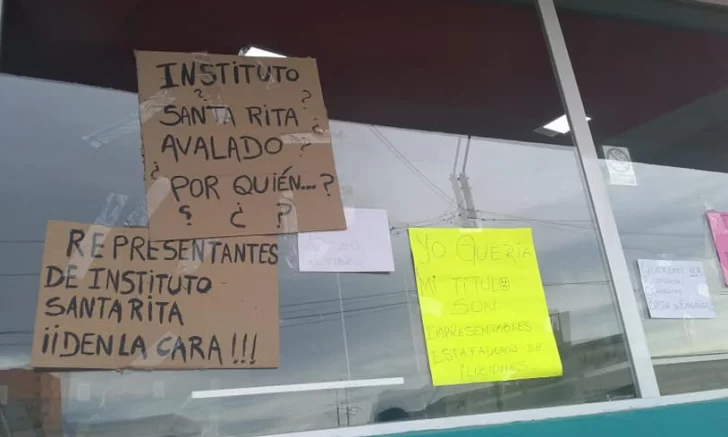 INSTITUTO
SANTA RITA
AVALADO
¿POR QUIÉN...?
REPRESENTANTES
DE INSTITUTO
SANTA RITA
¡¡DEN LA CARA!!!
YO QUERÍA
MI TITULO
SON
IMPRESENTABLES
ESTAFADORES DE
ILUSIONES